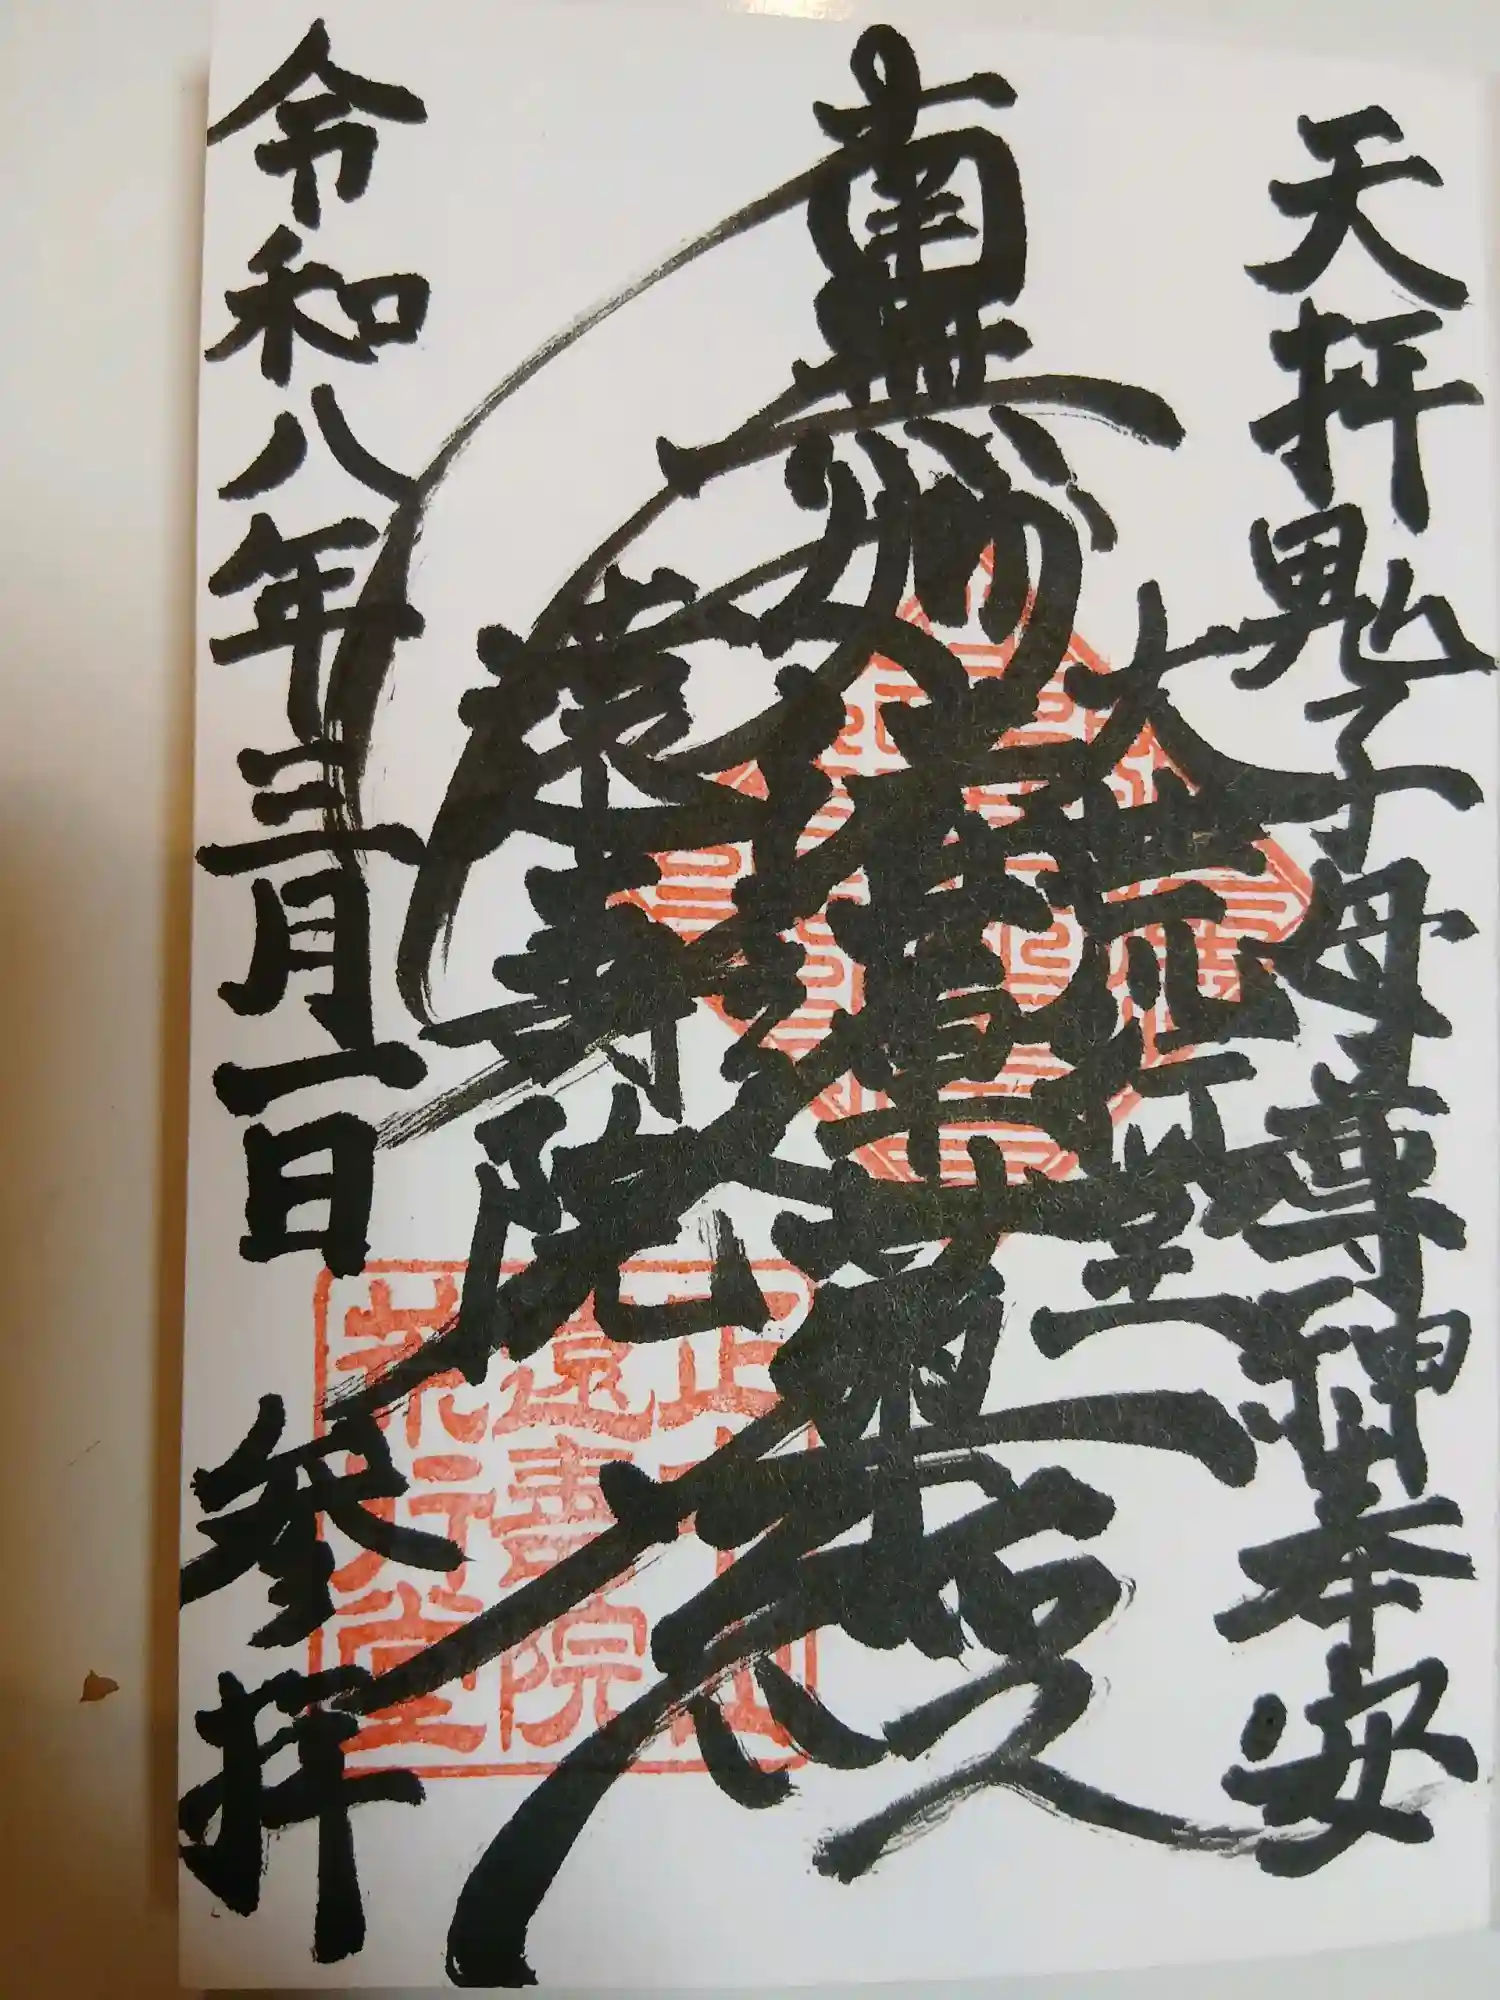 天拝鬼子母尊神奉安
大荒行堂
南無妙法蓮華經
遠壽院
令和八年三月一日 参拝
正中山
遠壽院
荒行堂